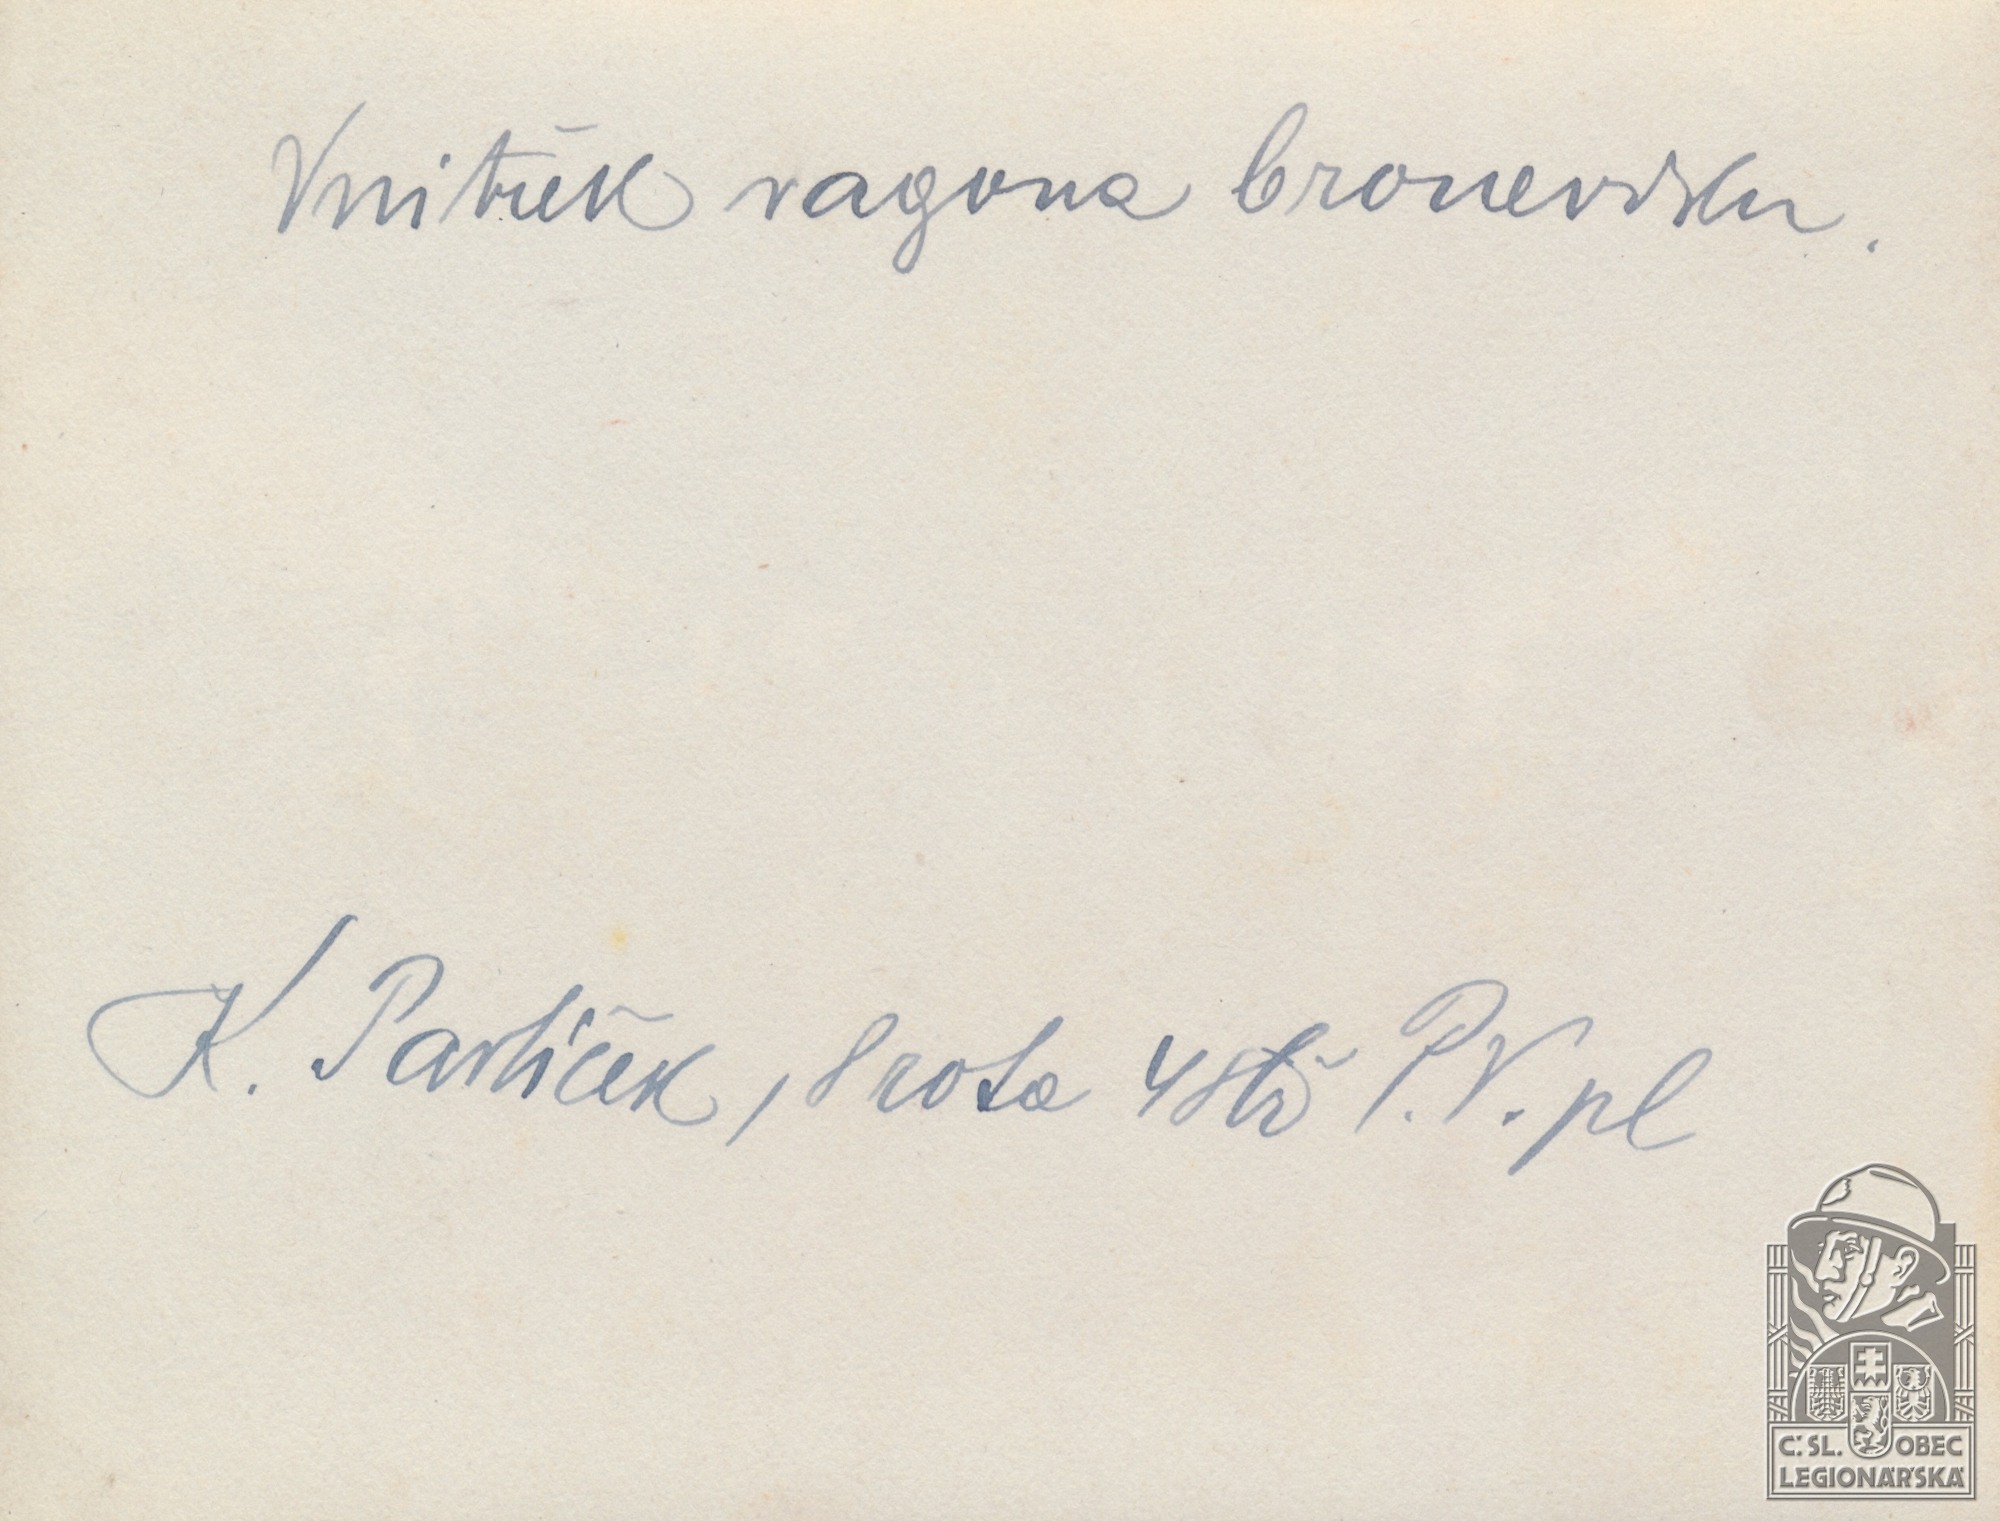 Vnitřek vagona bronevisku.
K. Pavlíček, 8 rota 4 stř P.V. pl
Č.SL. OBEC
LEGIONÁŘSKÁ